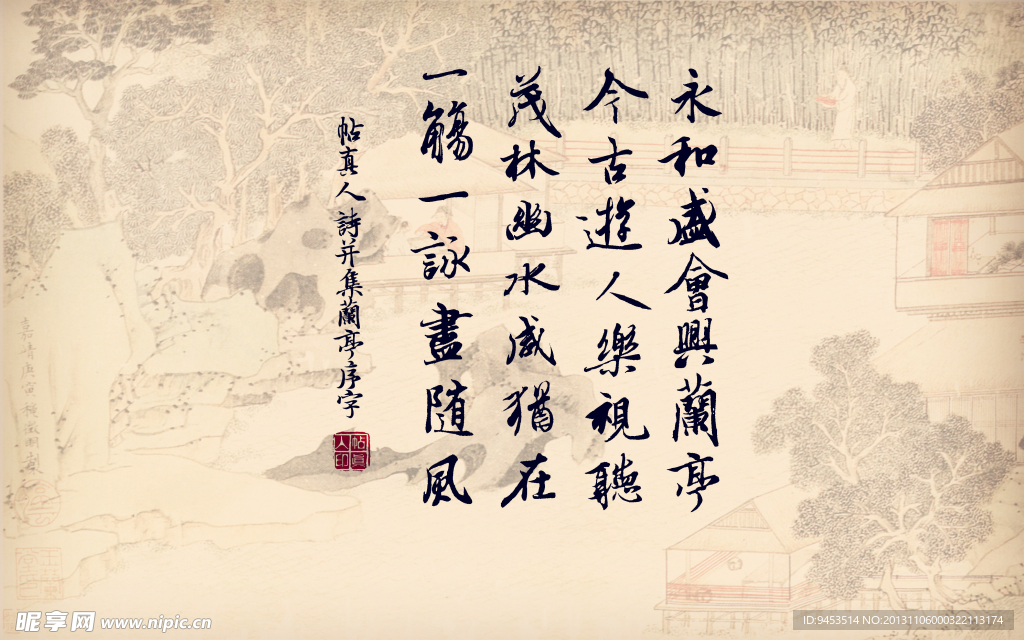 永和盛會興蘭亭
今古遊人樂視聽
茂林幽水感猶在
一觴一詠盡隨風
帖真人詩并集蘭亭序字
帖真人印
昵享网 www.nipic.cn
ID:9453514 NO:20131106000322113174